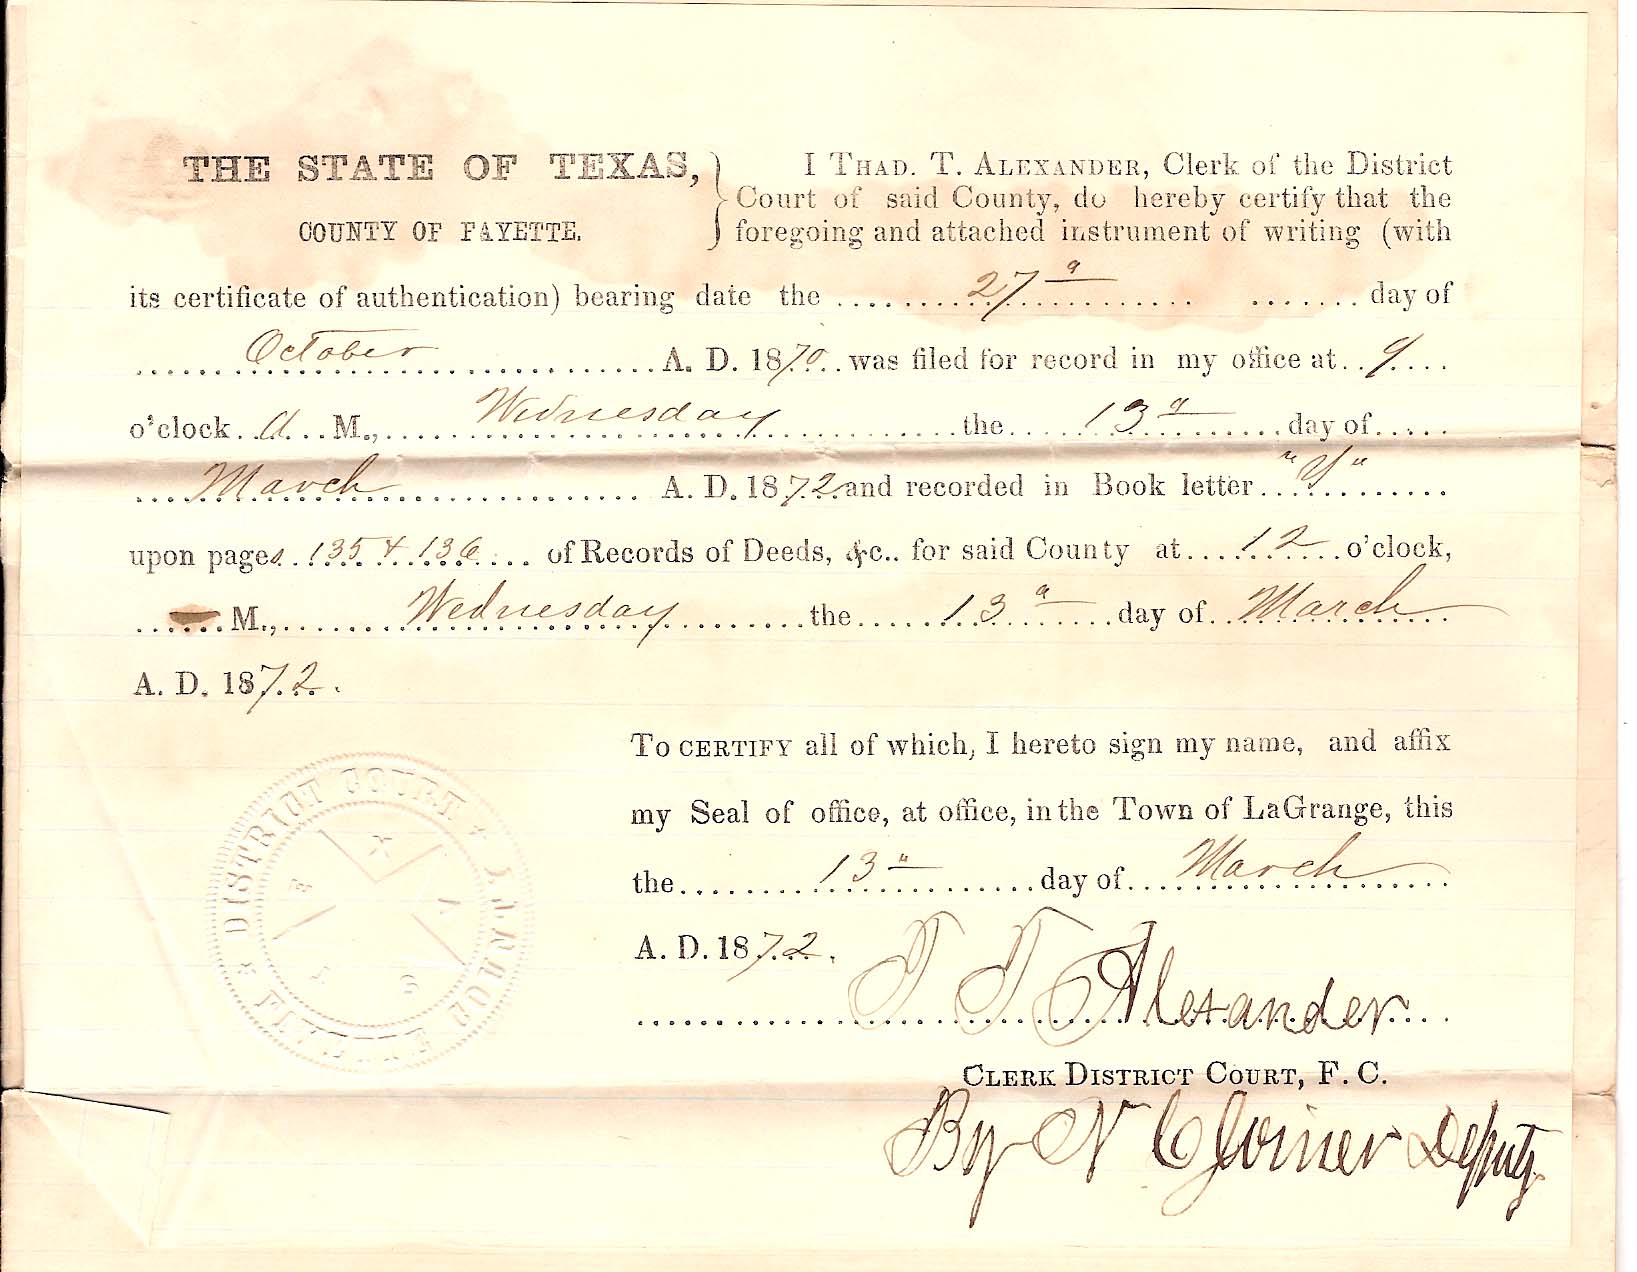 THE STATE OF TEXAS,
COUNTY OF FAYETTE.
I THAD. T. ALEXANDER, Clerk of the District
Court of said County, do hereby certify that the
foregoing and attached instrument of writing (with
its certificate of authentication) bearing date the 27 day of
October A. D. 1870 was filed for record in my office at 9
o'clock a M., Wednesday the 13 day of
March A. D. 1872 and recorded in Book letter
upon pages 135 & 136 of Records of Deeds, &c.. for said County at 12 o'clock,
M., Wednesday the 13 day of March
A. D. 1872.
TO CERTIFY all of which, I hereto sign my name, and affix
my Seal of office, at office, in the Town of LaGrange, this
the 13 day of March
A. D. 1872.
T T Alexander
CLERK DISTRICT COURT, F. C.
By N C Joiner Deputy.
DISTRICT COURT
FAYETTE
TEXAS